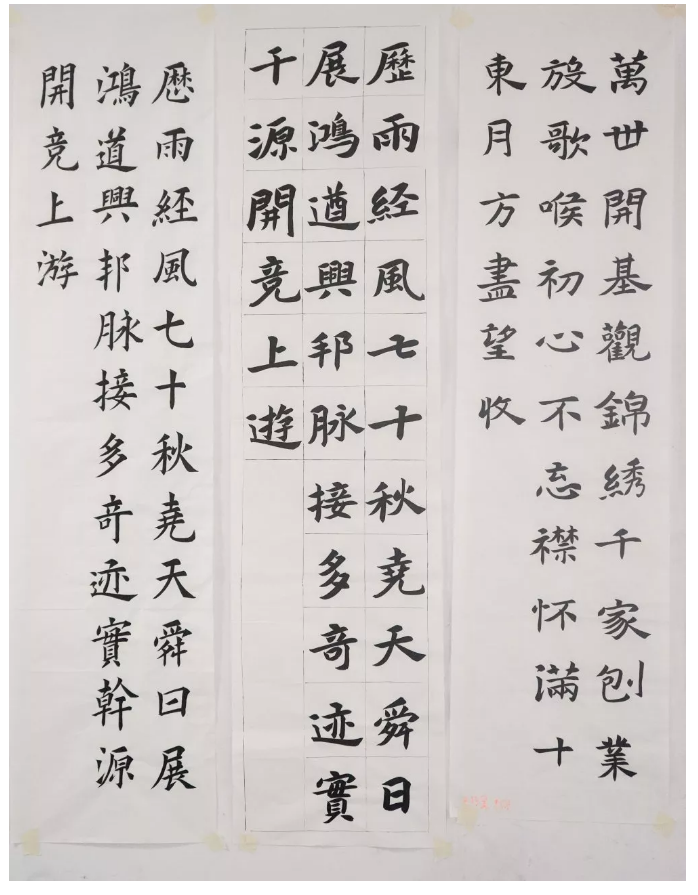 萬世開基觀錦綉千家創業
放歌喉初心不忘襟怀滿十
東月方盡望收
歷雨经風七十秋堯天舜日
展鴻道興邦脉接多奇迹實
千源開竞上遊
歷雨経風七十秋堯天舜日展
鴻道興邦脉接多奇迹實幹源
開竞上游